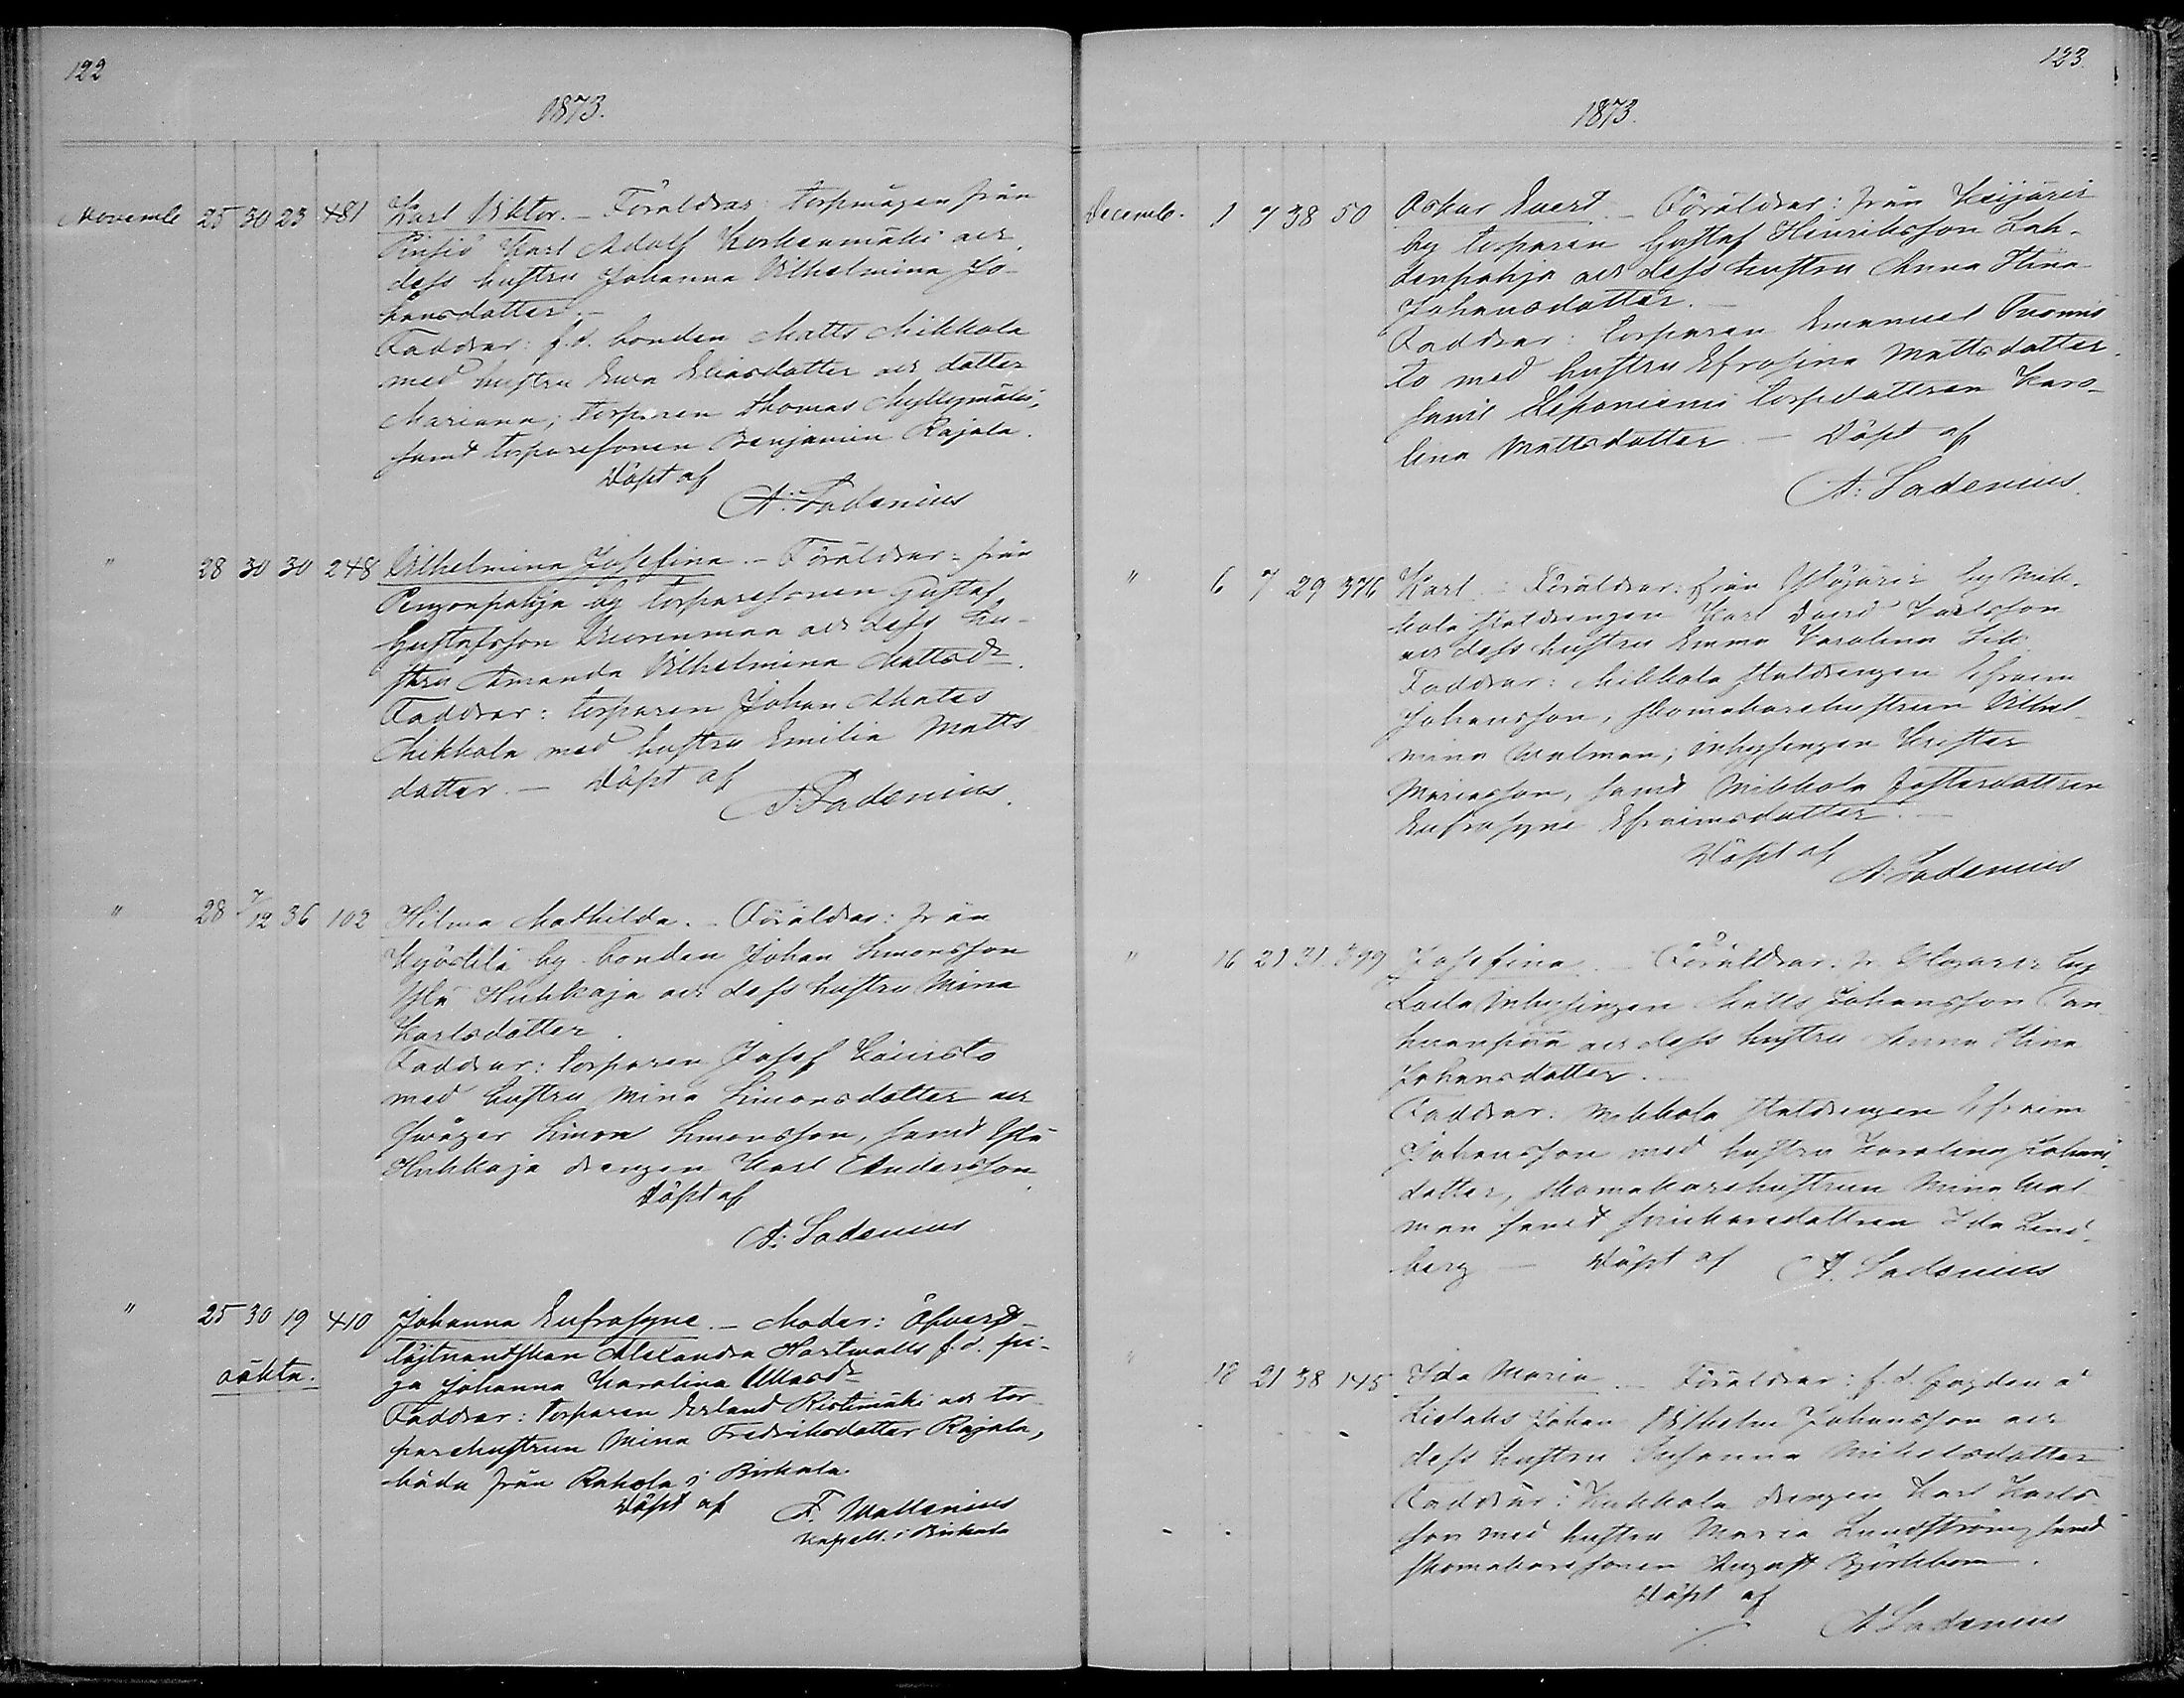 122
1873.
Novembr 25 30 23 481 Karl Viktor. – Föräldrar: torpmågen från
Pinsiö Karl Adolf Korkeamäki och
dess hustru Johanna Vilhelmina Jo-
hansdotter. –
Faddrar: f.d. bonden Matts Mikkola
med hustru Eva Eliasdotter och dotter
Mariana; torparen Thomas Myllymäki,
samt torparesonen Benjamin Rajala.
Döpt af
A. Ladenius
" 28 30 30 248 Vilhelmina Josefina. – Föräldrar: från
Penzonpohja by torparesonen Gustaf
Gustafsson Vuorenmaa och dess hu-
stru Amanda Vilhelmina Mattsdr.
Faddrar: torparen Johan
Mikkola med hustru Emilia Matts
dotter. – Döpt af
A. Ladenius.
" 28 7/12 36 102 Hilma Mathilda. – Föräldrar: från
Kyöstilä by bonden Johan Simonsson
Yli Hukkaja och dess hustru Mina
Karlsdotter.
Faddrar: torparen Josef Koivisto
med hustru Mina Simonsdotter och
svåger Simon Simonsson, samt Yli
Hukkaja drengen Karl Andersson.
Döpt af
A. Ladenius
" 25 30 19 410 Johanna Eufrosyne. – Moder: Öfverst-
oäkta. löjtnantskan Alexandra Hartwalls f.d. pi-
ga Johanna Karolina
Faddrar: torparen Erland Ristimäki och tor-
parehustrun Mina Fredriksdotter Rajala,
båda från Rahola i Birkala.
Döpt af F. Wallenius
Kapell. i Birkala
123.
1873.
Decemb. 1 7 38 50 Oskar Evert. – Föräldrar: från Keijäris
by torparen Gustaf Henriksson Leh-
denpohja och dess hustru Anna Stina
Johansdotter. –
Faddrar: torparen Emanuel Tuomis
to med hustru Efrosina Mattsdotter
samt Leponiemi torpdottren Karo-
lina Mattsdotter. – Döpt af
A. Ladenius.
" 6 7 29 376 Karl. – Föräldrar: från Ylöjärvi by Mik-
kola statdrengen Karl David Karlsson
och dess hustru Emma Karolina
Faddrar: Mikkola statdrengen Efraim
Johansson; skomakarehustrun Vilhel-
mina Walman; inhysingen Krister
Mariasson, samt Mikkola dottren
Eufrosyne Efraimsdotter. –
Döpt af
A. Ladenius
" 16 21 31 399 Josefina. – Föräldrar: fr. Ylöjärvi by
inhysingen Matts Johansson Tan
huanpää och dess hustru Anna Stina
Johansdotter. –
Faddrar: Mikkola statdrengen Efraim
Johansson med hustru Karolina Johans
dotter, skomakarehustrun Mina Wal-
man samt dottren Ida Lind-
berg – Döpt af A. Ladenius
" 18 21 38 145 Ida Maria. – Föräldrar: f.d. fogden å
Johan Vilhelm Johansson och
dess hustru Susanna Mikelsdotter
Faddrar: drengen Karl Karls
son med hustru Maria Lundström samt
skomakaresonen August Björkbom.
Döpt af
A. Ladenius